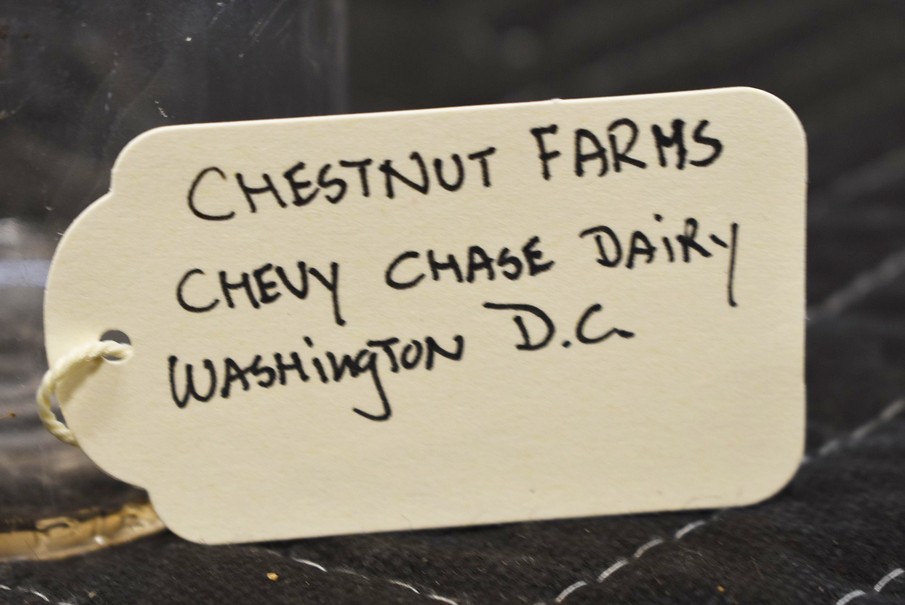 CHESTNUT FARMS
CHEVY CHASE DAiRY
WASHingTON D.C.